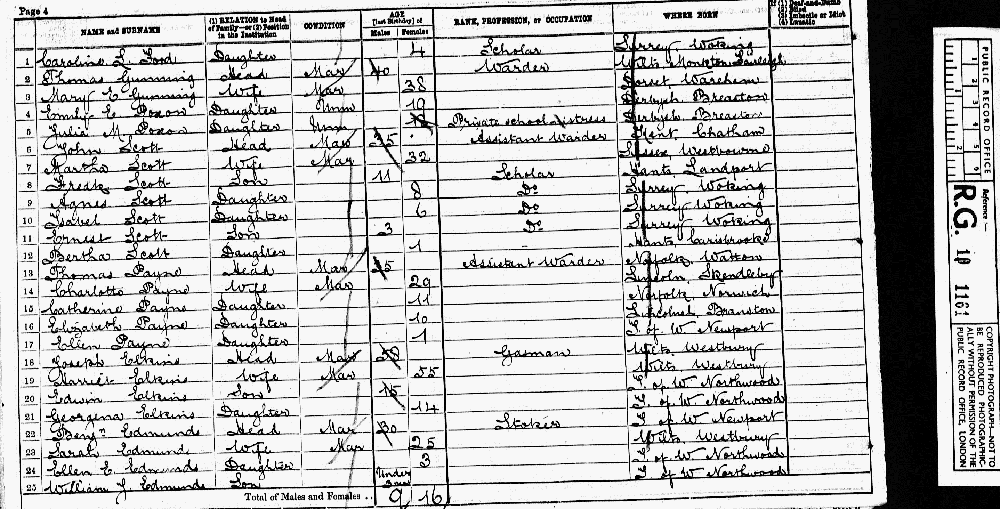 Page 4
NAME and SURNAME (1) RELATION to Head of Family—or (2) Position in the Institution CONDITION AGE [last Birthday] of Males Females RANK, PROFESSION, or OCCUPATION WHERE BORN If (1) Deaf-and-Dumb (2) Blind (3) Imbecile or Idiot (4) Lunatic
1 Caroline L. Ford Daughter 4 Scholar Surrey Woking
2 Thomas Gumming Head Mar 40 Warder Wilts
3 Mary E Gumming Wife Mar 38 Dorset Wareham
4 Emily E Poxon Daughter Unm 19 Derbysh Breaston
5 Julia M Poxon Daughter Unm Private school Derbysh Breaston
6 John Scott Head Mar 35 Assistant Warder Kent Chatham
7 Martha Scott Wife Mar 32 Sussex Westbourne
8 Fredk Scott Son 11 Scholar Hants Landport
9 Agnes Scott Daughter 8 Do Surrey Woking
10 Isabel Scott Daughter 6 Do Surrey Woking
11 Ernest Scott Son 3 Do Surrey Woking
12 Bertha Scott Daughter 1 Hants Carisbrooke
13 Thomas Payne Head Mar Assistant Warder Norfolk Watton
14 Charlotte Payne Wife Mar 29 Lincoln Skendleby
15 Catherine Payne Daughter 11 Norfolk Norwich
16 Elizabeth Payne Daughter 10 Lincolns Branston
17 Ellen Payne Daughter 1 I. of W Newport
18 Joseph Elkins Head Mar Gasman Wilts Westbury
19 Harriet Elkins Wife Mar 55 Wilts Westbury
20 Edwin Elkins Son 15 I. of W Northwood
21 Georgena Elkins Daughter 14 I. of W Northwood
22 Benjn Edmunds Head Mar 30 Stoker I. of W Newport
23 Sarah Edmund Wife Mar 25 Wilts Westbury
24 Ellen E. Edmunds Daughter 3 I. of W Northwood
25 William J. Edmunds Son Under I. of W Northwood
Total of Males and Females .. 9 16
PUBLIC RECORD OFFICE
1 2 3 4 5 6
Reference :-
R.G. 10 1161
COPYRIGHT PHOTOGRAPH—NOT TO
BE REPRODUCED PHOTOGRAPHIC-
ALLY WITHOUT PERMISSION OF THE
PUBLIC RECORD OFFICE, LONDON